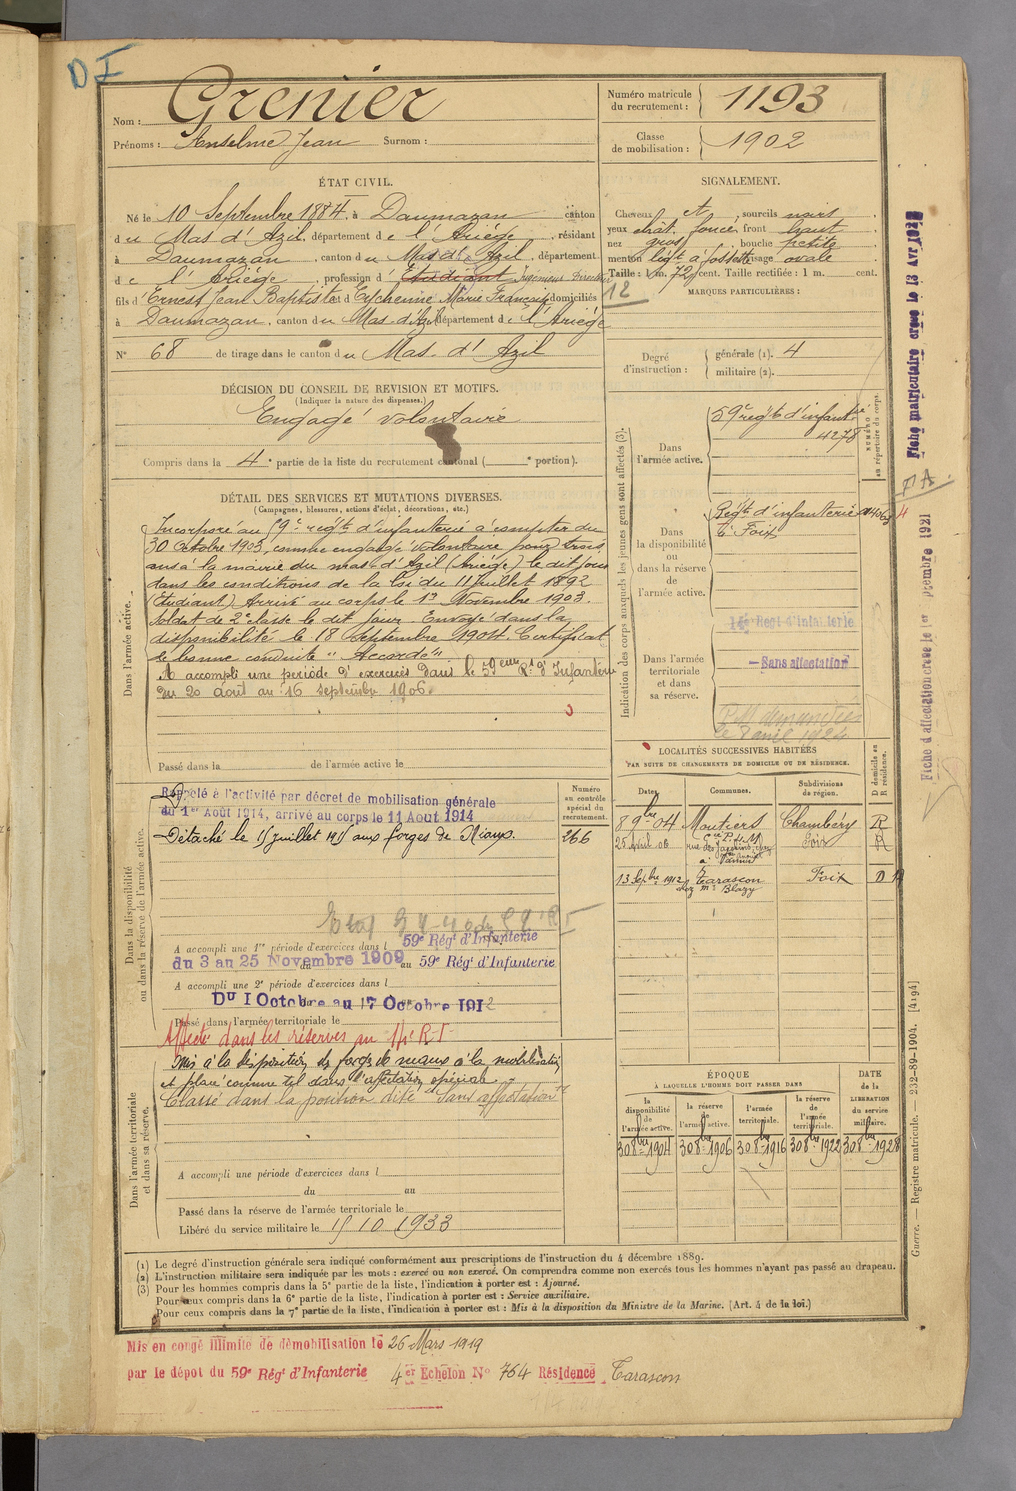 D I
Nom : Grenier
Prénoms : Anselme Jean Surnom :
Numéro matricule du recrutement : 1193
Classe de mobilisation : 1902
ÉTAT CIVIL.
Né le 10 Septembre 1884 à Daumazan canton
du Mas d'Azil, département de l'Ariège, résidant
à Daumazan, canton du Mas d'Azil, département
de l'Ariège, profession d'Etudiant Ingénieur Directeur
fils d'Ernest Jean Baptiste et d'Eychenne Marie Françoise domiciliés
à Daumazan, canton du Mas d'Azil département de l'Ariège
N° 68 de tirage dans le canton du Mas d'Azil
SIGNALEMENT.
Cheveux et, sourcils noirs.
yeux chat. foncé, front haut
nez gros, bouche petite
menton visage ovale.
Taille : 1 m. 72 cent. Taille rectifiée : 1 m. cent.
12
MARQUES PARTICULIÈRES :
Degré d'instruction : générale (1). 4
militaire (2).
DÉCISION DU CONSEIL DE REVISION ET MOTIFS.
(Indiquer la nature des dispenses.)
Engagé volontaire
Compris dans la 4e partie de la liste du recrutement cantonal ( e portion).
DÉTAIL DES SERVICES ET MUTATIONS DIVERSES.
(Campagnes, blessures, actions d'éclat, décorations, etc.)
Dans l'armée active.
Incorporé au 59e regt d'infanterie à compter du
30 Octobre 1903, comme engagé volontaire pour trois
ans à la mairie du mas d'Azil (Ariège) le dit jour
dans les conditions de la loi du 11 Juillet 1892
(Etudiant) Arrivé au corps le 1er Novembre 1903.
Soldat de 2e classe le dit jour. Envoyé dans la
disponibilité le 18 Septembre 1904. Certificat
de bonne conduite "Accordé"
A accompli une période d'exercices dans le 59eme Rt d'Infanterie
du 20 août au 16 septembre 1906.
Passé dans la de l'armée active le
Indication des corps auxquels les jeunes gens sont affectés (3).
NUMÉRO au répertoire du corps.
Dans l'armée active.
59e regt d'infantie
4278
Dans la disponibilité ou dans la réserve de l'armée active.
Regt d'infanterie
de Foix
Dans l'armée territoriale et dans sa réserve.
14e Regt d'Infanterie
— Sans affectation
Fiche matriculaire créée le 13 Avr
P A
Fiche d'affectation créée le 1er septembre 1921
LOCALITÉS SUCCESSIVES HABITÉES
PAR SUITE DE CHANGEMENTS DE DOMICILE OU DE RÉSIDENCE.
Dates Communes. Subdivisions de région. D domicile ou R résidence.
8 9bre 04 Moutiers Chambéry R
25 Avril 06 Foix R
13 Septbre 1912 Tarascon chez Mr Blazy Foix D
Dans la disponibilité ou dans la réserve de l'armée active.
Numéro au contrôle spécial du recrutement.
266
Rappelé à l'activité par décret de mobilisation générale
du 1er Août 1914, arrivé au corps le 11 Aout 1914
Détaché le 15 juillet 1915 aux forges de Niaux.
A accompli une 1re période d'exercices dans l 59e Régt d'Infanterie
du 3 au 25 Novembre 1909 au 59e Régt d'Infanterie
A accompli une 2e période d'exercices dans l
Du 1 Octobre au 17 Octobre 1912
Passé dans l'armée territoriale le
Affecté dans les réserves au 14e R I
Dans l'armée territoriale et dans sa réserve.
Mis à la disposition des forges de niaux à la mobilisation
et placé comme tel dans l'affectation spéciale
Classé dans la position dite "Sans affectation"
A accompli une période d'exercices dans l
du au
Passé dans la réserve de l'armée territoriale le
Libéré du service militaire le 15 10 1933
ÉPOQUE
À LAQUELLE L'HOMME DOIT PASSER DANS
DATE de la LIBÉRATION du service militaire.
la disponibilité de l'armée active. la réserve de l'armée active. l'armée territoriale. la réserve de l'armée territoriale.
30 8bre 1904 30 8bre 1906 30 8bre 1916 30 8bre 1922 30 8bre 1928
Guerre. — Registre matricule. — 232-89-1904. [4194]
(1) Le degré d'instruction générale sera indiqué conformément aux prescriptions de l'instruction du 4 décembre 1889.
(2) L'instruction militaire sera indiquée par les mots : exercé ou non exercé. On comprendra comme non exercés tous les hommes n'ayant pas passé au drapeau.
(3) Pour les hommes compris dans la 5e partie de la liste, l'indication à porter est : Ajourné.
Pour ceux compris dans la 6e partie de la liste, l'indication à porter est : Service auxiliaire.
Pour ceux compris dans la 7e partie de la liste, l'indication à porter est : Mis à la disposition du Ministre de la Marine. (Art. 4 de la loi.)
Mis en congé illimité de démobilisation le 26 Mars 1919
par le dépot du 59e Régt d'Infanterie 4er Echelon N° 764 Résidence Tarascon